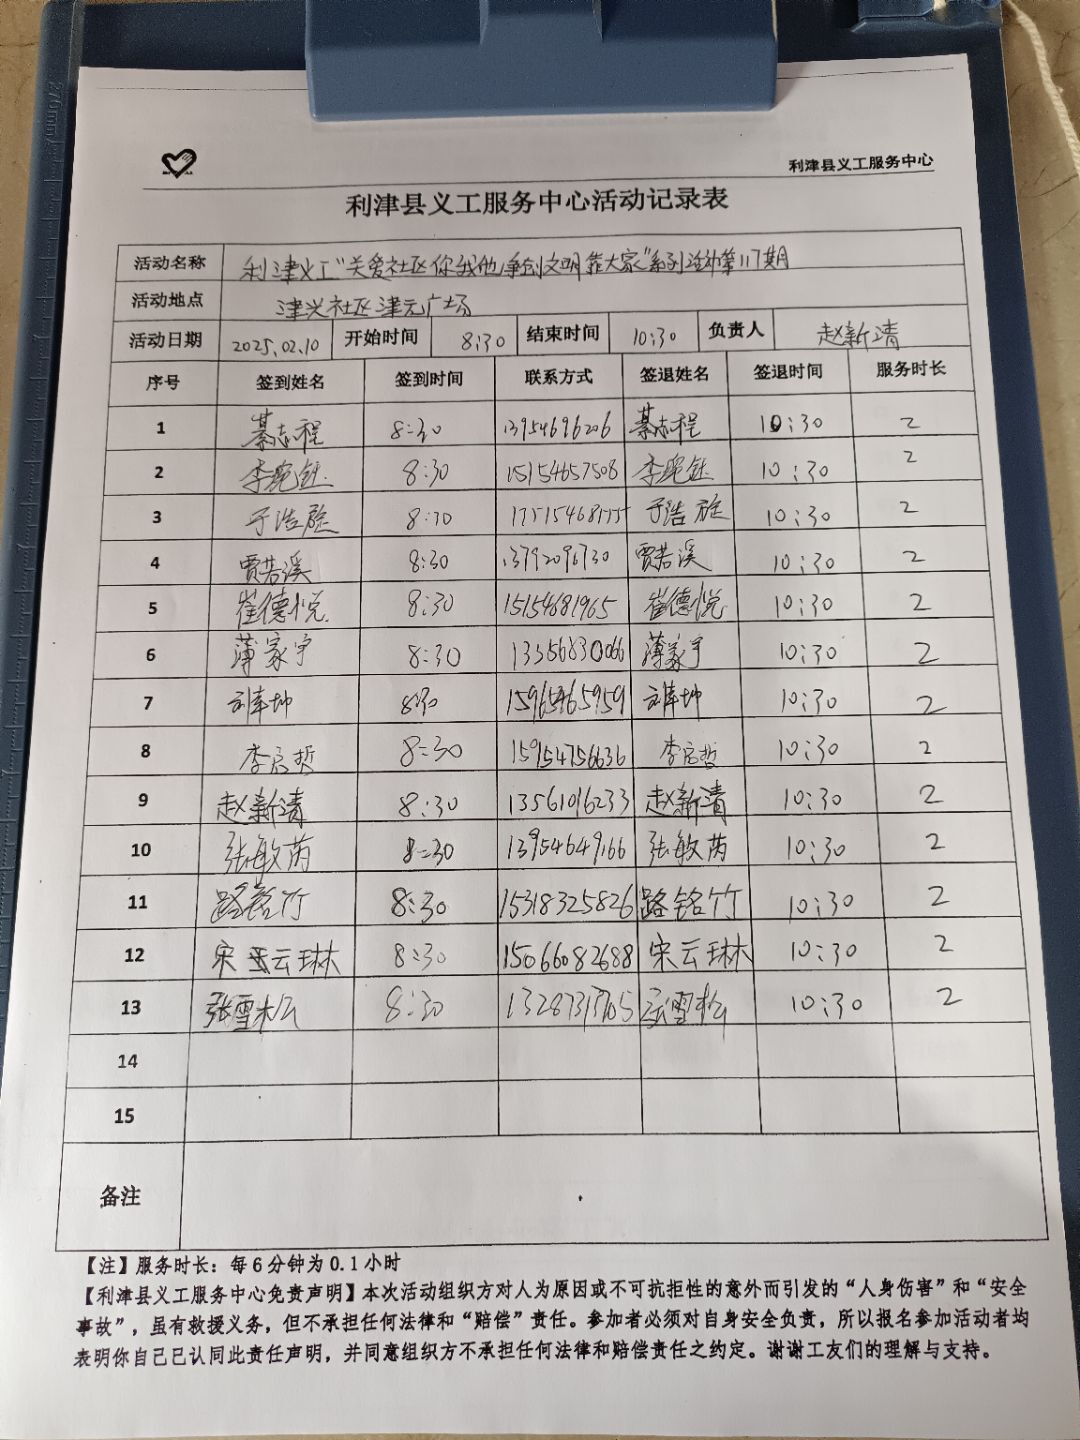 270mm
利津县义工服务中心
利津县义工服务中心活动记录表
活动名称 利津义工"关爱社区你我他,争创文明靠大家"系列活动第117期
活动地点 津兴社区津元广场
活动日期 2025.02.10 开始时间 8:30 结束时间 10:30 负责人 赵新清
序号 签到姓名 签到时间 联系方式 签退姓名 签退时间 服务时长
1 綦志程 8:30 13954696206 綦志程 10:30 2
2 李婉钰 8:30 15154657508 李婉钰 10:30 2
3 于浩 8:30 于浩 10:30 2
4 贾若溪 8:30 贾若溪 10:30 2
5 崔德悦 8:30 15154681965 崔德悦 10:30 2
6 薄家宇 8:30 薄家宇 10:30 2
7 坤 8:30 15965465959 坤 10:30 2
8 李启哲 8:30 15954756636 李启哲 10:30 2
9 赵新清 8:30 13561016233 赵新清 10:30 2
10 张敏芮 8:30 13954649166 张敏芮 10:30 2
11 路铭竹 8:30 15318325826 路铭竹 10:30 2
12 宋云琳 8:30 15066082688 宋云琳 10:30 2
13 张雪松 8:30 张雪松 10:30 2
14
15
备注
【注】服务时长：每6分钟为0.1小时
【利津县义工服务中心免责声明】本次活动组织方对人为原因或不可抗拒性的意外而引发的“人身伤害”和“安全
事故”，虽有救援义务，但不承担任何法律和“赔偿”责任。参加者必须对自身安全负责，所以报名参加活动者均
表明你自己已认同此责任声明，并同意组织方不承担任何法律和赔偿责任之约定。谢谢工友们的理解与支持。